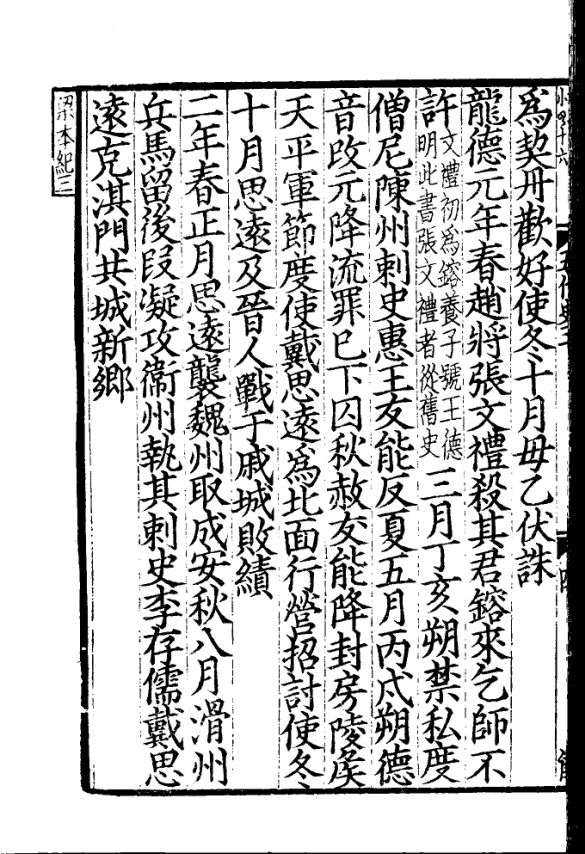 爲契丹歡好使冬十月毋乙伏誅
龍德元年春趙將張文禮殺其君鎔來乞師不
許文禮初爲鎔養子號王德明此書張文禮者從舊史三月丁亥朔禁私度
僧尼陳州刺史惠王友能反夏五月丙戌朔德
音改元降流罪已下囚秋赦友能降封房陵侯
天平軍節度使戴思遠爲北面行營招討使冬
十月思遠及晉人戰于戚城敗績
二年春正月思遠襲魏州取成安秋八月滑州
兵馬留後段凝攻衛州執其刺史李存儒戴思
遠克淇門共城新鄉
梁本紀三